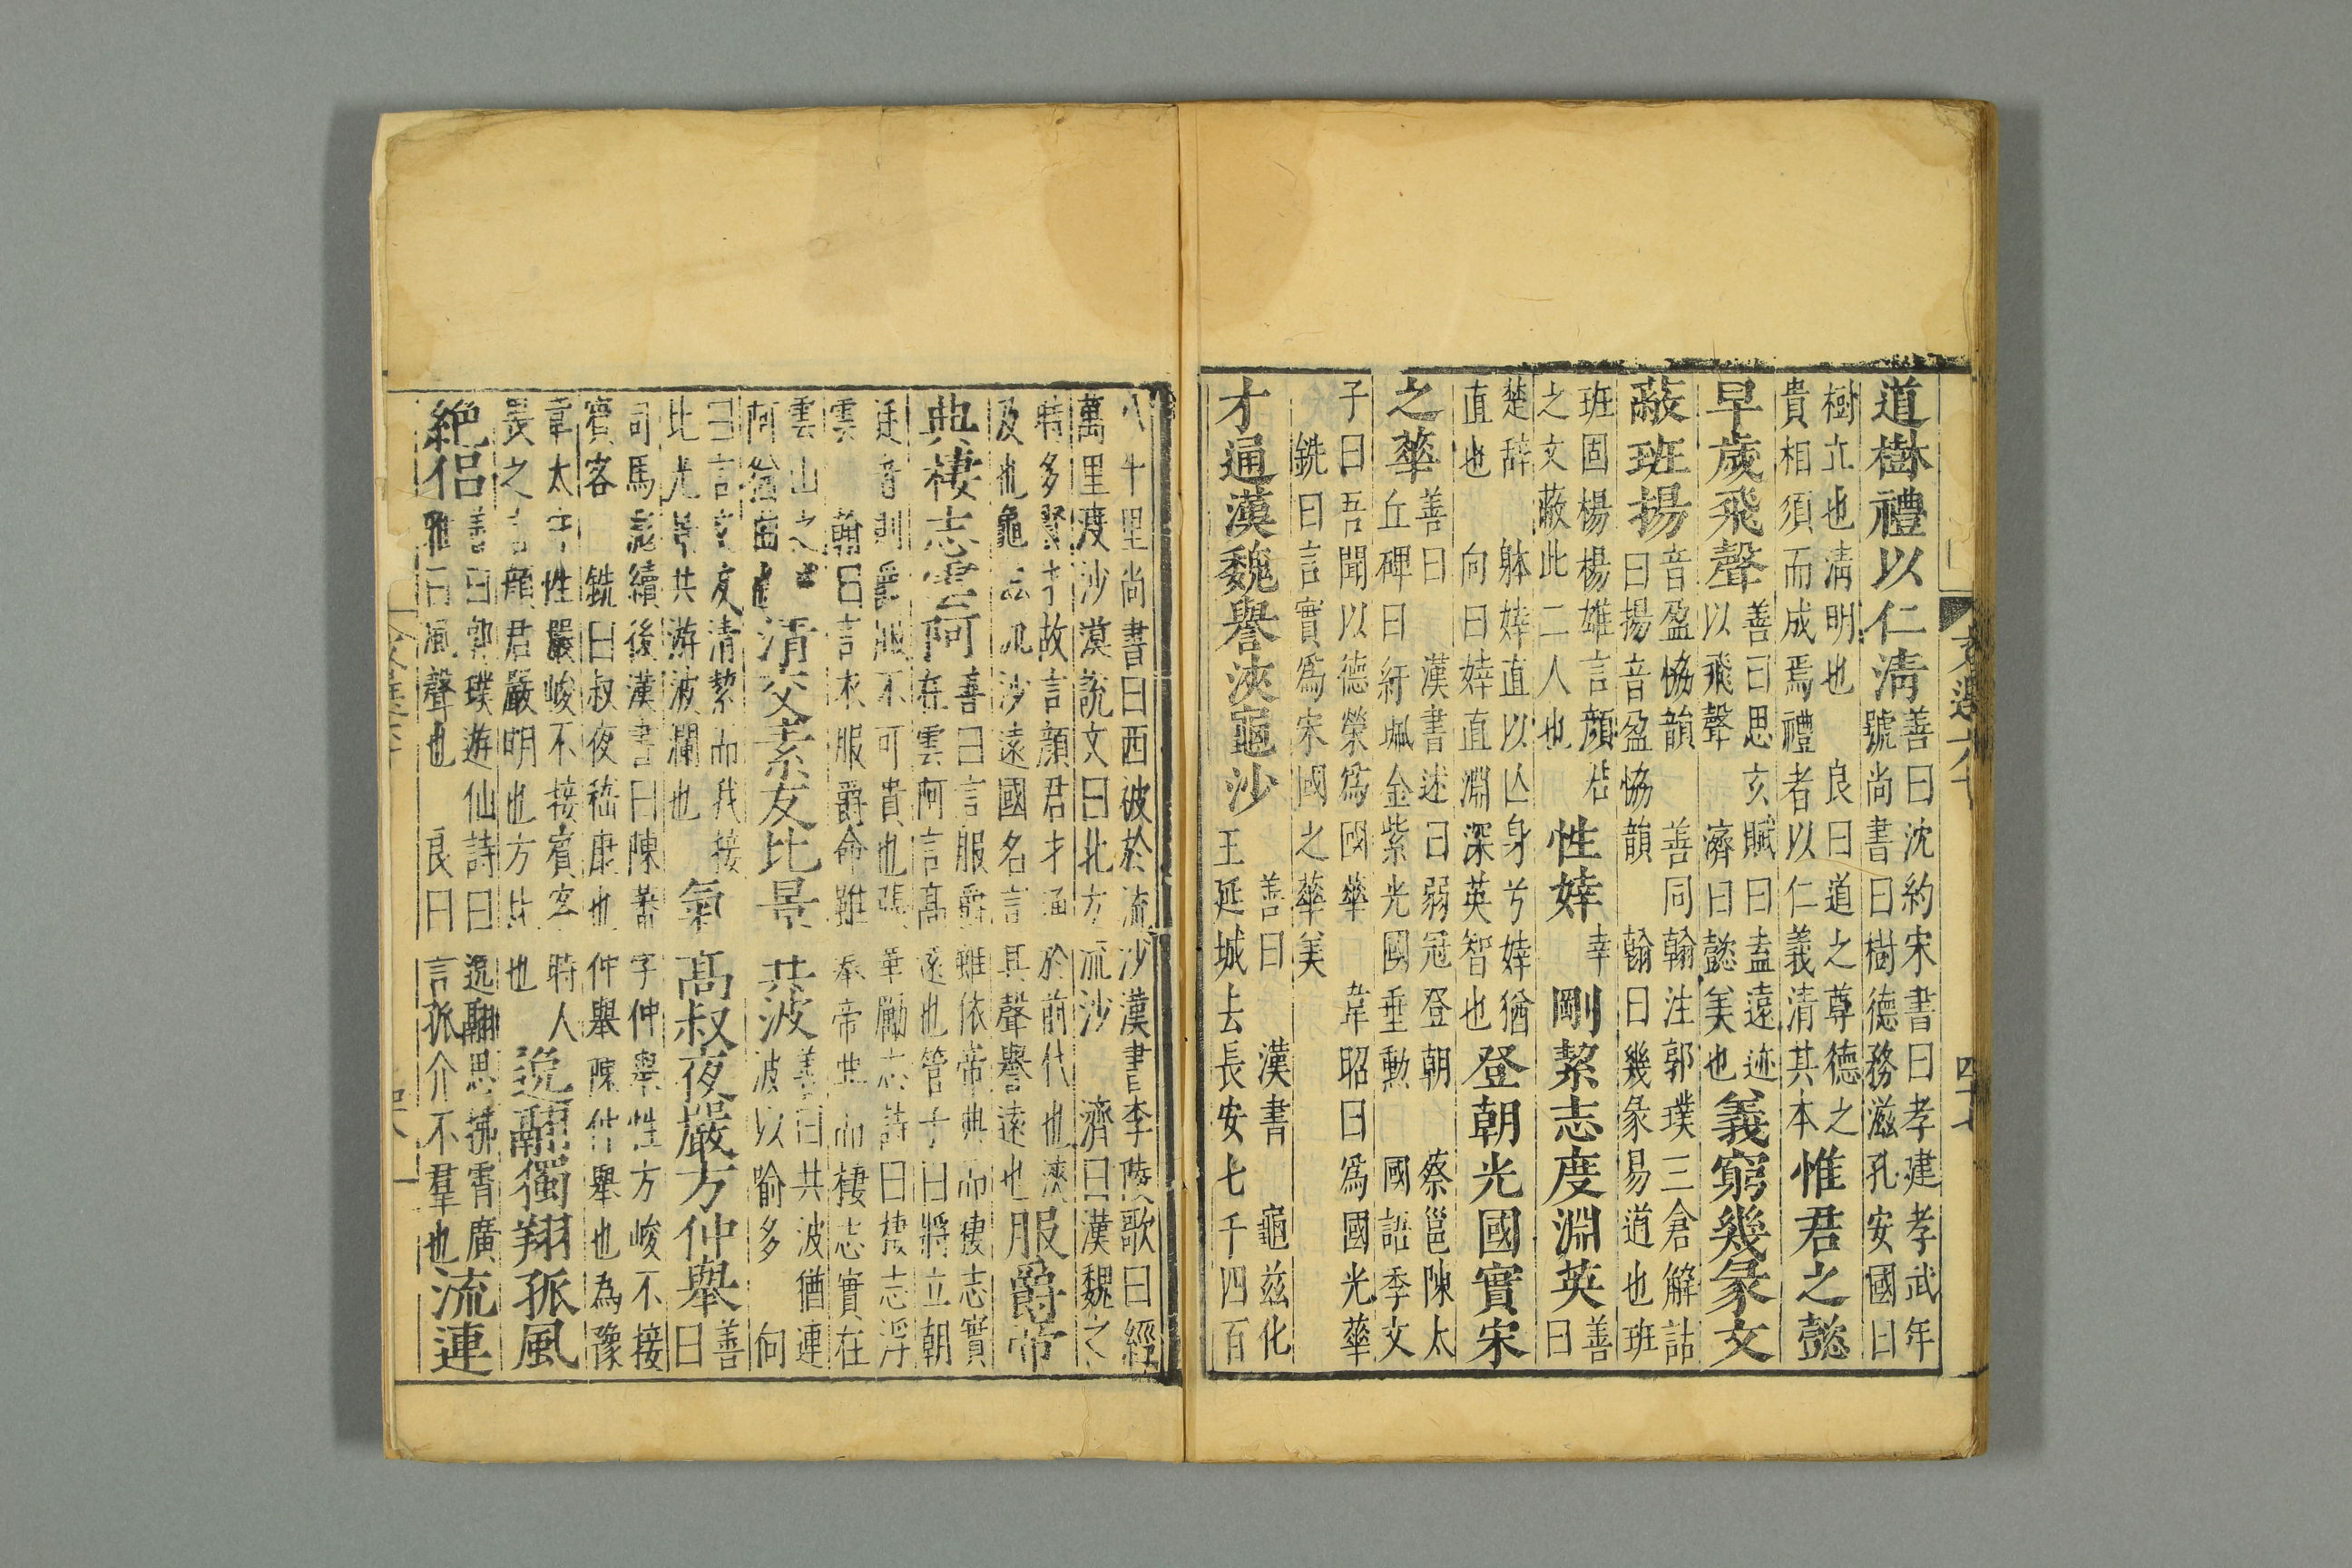 道樹禮以仁淸善曰沈約宋書曰孝建孝武年號尚書曰樹德務滋孔安國曰
樹立也淸明也 良曰道之尊德之貴相須而成焉禮者以仁義清其本惟君之懿
早歲飛聲善曰思玄賦曰盍遠迹以飛聲 濟曰懿美也義窮幾彖文
蔽班揚音盈恊韻 善同翰注郭璞三倉解詁曰揚音盈恊韻 翰曰幾彖易道也班
班固楊楊雄言顔之文蔽此二人也性婞幸剛絜志度淵英善曰
楚辭 躰婞直以亾身兮婞猶直也 向曰婞直淵深英智也登朝光國實宋
之華善曰 漢書述曰弱冠登朝 蔡邕陳太丘碑曰紆珮金紫光國垂勳 國語季文
子曰吾聞以德榮爲國華 韋昭曰爲國光華銑曰言實爲宋國之華美
才通漢魏譽浹龜沙善曰 漢書 龜兹化王延城去長安七千四百
文選六十
四十七
八千里尚書曰西被於流沙漢書李陵歌曰經萬里渡沙漠說文曰北方流沙 濟曰漢魏之
時多賢才故言顔君才通於前代也浹及也龜沙遠國名言其聲譽遠也服爵帝
典棲志雲阿善曰言服爵雖依帝典而棲志實在雲阿言高遠也管子曰將立朝
廷者則爵服不可貴也張華勵志詩曰棲志浮雲 翰曰言衣服爵命雖奉帝典而棲志實在
雲山之 阿猶曲也清交素友比景共波善曰共波猶連波以喻多 向
曰言交友清絜而我接比光景共游波瀾也氣高叔夜嚴方仲舉善曰
司馬彪續後漢書曰陳蕃字仲舉性方峻不接賔客 銑曰叔夜嵇康也仲舉陳仲舉也為豫
章太守性嚴峻不接賓客時人畏之言顔君嚴明也方比也逸翮獨翔孤風
絶侣善曰郭璞遊仙詩曰逸翮思拂霄廣雅曰風聲也 良曰言孤介不羣也流連